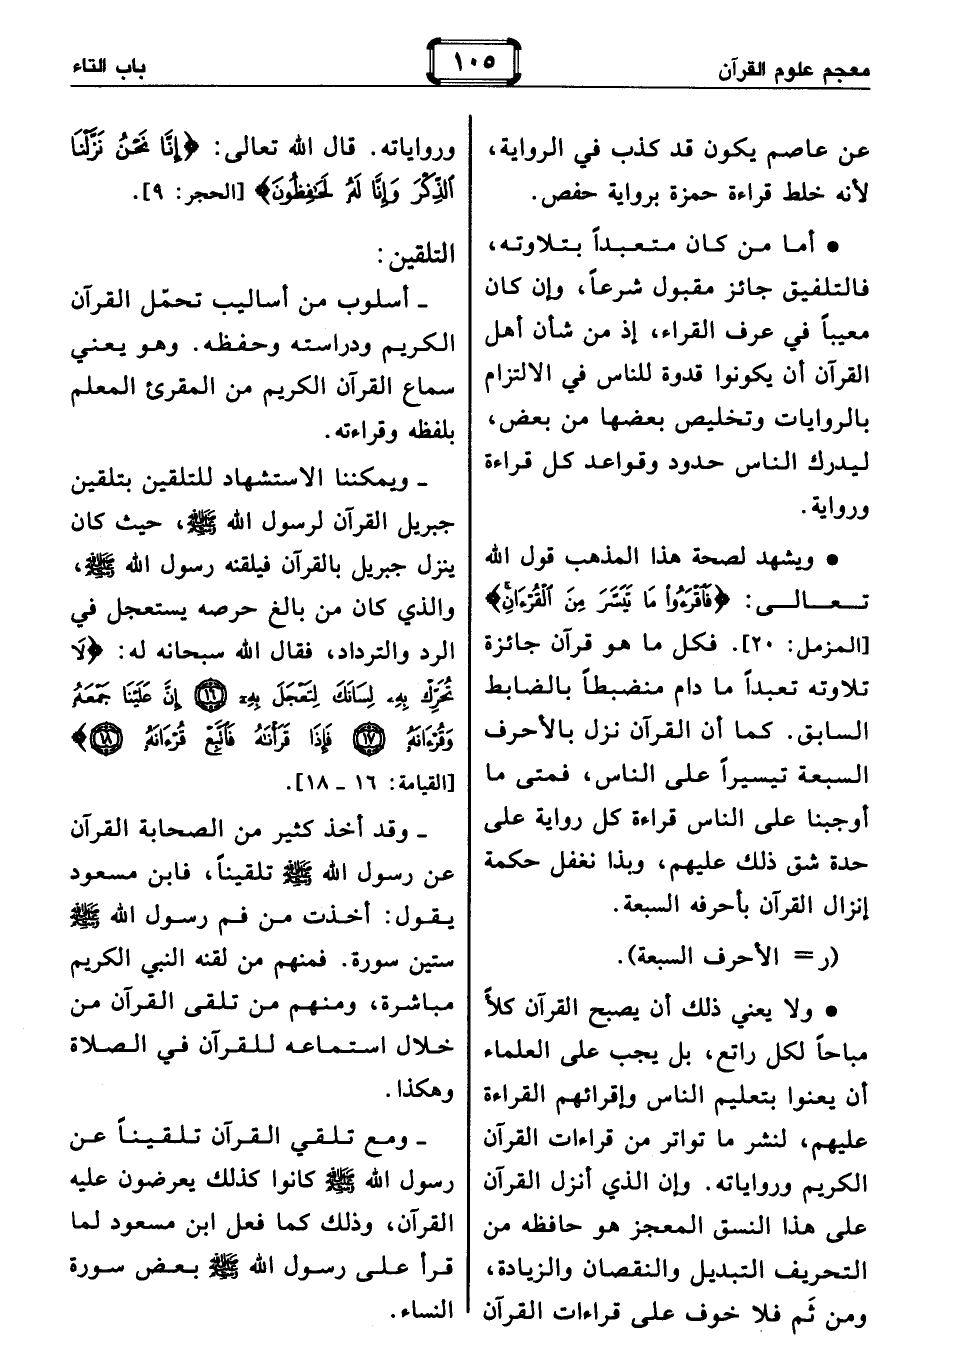 معجم علوم القرآن
١٠٥
باب التاء
عن عاصم يكون قد كذب في الرواية،
لأنه خلط قراءة حمزة برواية حفص.
● أما من كان متعبداً بتلاوته،
فالتلفيق جائز مقبول شرعاً، وإن كان
معيباً في عرف القراء، إذ من شأن أهل
القرآن أن يكونوا قدوة للناس في الالتزام
بالروايات وتخليص بعضها من بعض،
ليدرك الناس حدود وقواعد كل قراءة
ورواية.
● ويشهد لصحة هذا المذهب قول الله
تعالى: ﴿فَٱقْرَءُوا۟ مَا تَيَسَّرَ مِنَ ٱلْقُرْءَانِۚ﴾
[المزمل: ٢٠]. فكل ما هو قرآن جائزة
تلاوته تعبداً ما دام منضبطاً بالضابط
السابق. كما أن القرآن نزل بالأحرف
السبعة تيسيراً على الناس، فمتى ما
أوجبنا على الناس قراءة كل رواية على
حدة شق ذلك عليهم، وبذا نغفل حكمة
إنزال القرآن بأحرفه السبعة.
(ر= الأحرف السبعة).
● ولا يعني ذلك أن يصبح القرآن كلأً
مباحاً لكل راتع، بل يجب على العلماء
أن يعنوا بتعليم الناس وإقرائهم القراءة
عليهم، لنشر ما تواتر من قراءات القرآن
الكريم ورواياته. وإن الذي أنزل القرآن
على هذا النسق المعجز هو حافظه من
التحريف التبديل والنقصان والزيادة،
ومن ثَم فلا خوف على قراءات القرآن
ورواياته. قال الله تعالى: ﴿إِنَّا نَحْنُ نَزَّلْنَا
ٱلذِّكْرَ وَإِنَّا لَهُۥ لَحَٰفِظُونَ﴾ [الحجر: ٩].
التلقين:
ـ أسلوب من أساليب تحمّل القرآن
الكريم ودراسته وحفظه. وهو يعني
سماع القرآن الكريم من المقرئ المعلم
بلفظه وقراءته.
ـ ويمكننا الاستشهاد للتلقين بتلقين
جبريل القرآن لرسول الله ﷺ، حيث كان
ينزل جبريل بالقرآن فيلقنه رسول الله ﷺ،
والذي كان من بالغ حرصه يستعجل في
الرد والترداد، فقال الله سبحانه له: ﴿لَا
تُحَرِّكْ بِهِۦ لِسَانَكَ لِتَعْجَلَ بِهِۦٓ ۝١٦ إِنَّ عَلَيْنَا جَمْعَهُۥ
وَقُرْءَانَهُۥ ۝١٧ فَإِذَا قَرَأْنَٰهُ فَٱتَّبِعْ قُرْءَانَهُۥ ۝١٨﴾
[القيامة: ١٦ ـ ١٨].
ـ وقد أخذ كثير من الصحابة القرآن
عن رسول الله ﷺ تلقيناً، فابن مسعود
يقول: أخذت من فم رسول الله ﷺ
ستين سورة. فمنهم من لقنه النبي الكريم
مباشرة، ومنهم من تلقى القرآن من
خلال استماعه للقرآن في الصلاة
وهكذا.
ـ ومع تلقي القرآن تلقيناً عن
رسول الله ﷺ كانوا كذلك يعرضون عليه
القرآن، وذلك كما فعل ابن مسعود لما
قرأ على رسول الله ﷺ بعض سورة
النساء.